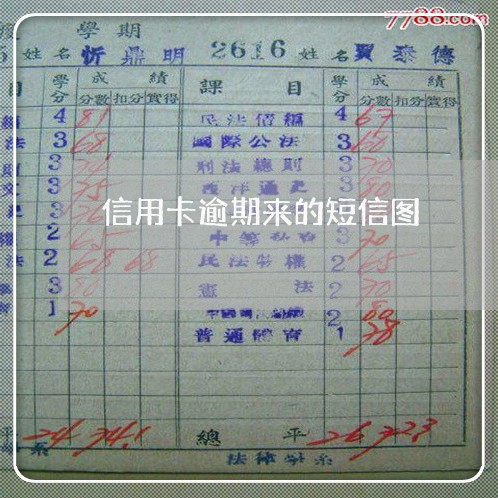 7788.com
學期
姓名 忻鼎明 2616 姓名 賈泰德
目 學分 成績 課目 學分 成績
分數 扣分 實得 分數 扣分 實得
4 81 民法債編 4 67
法 3 68 國際公法 3 60
3 刑法總則 3 70
3 75 西洋通史 3 80
信用卡逾期来的短信图
2 65 3 70
法 2 68 68 民法物權 2 65
3 80 憲法 2 70
1 70 2 80
普通體育 1 78
平 24 74.1 總平 26 72.3
系 法律學系